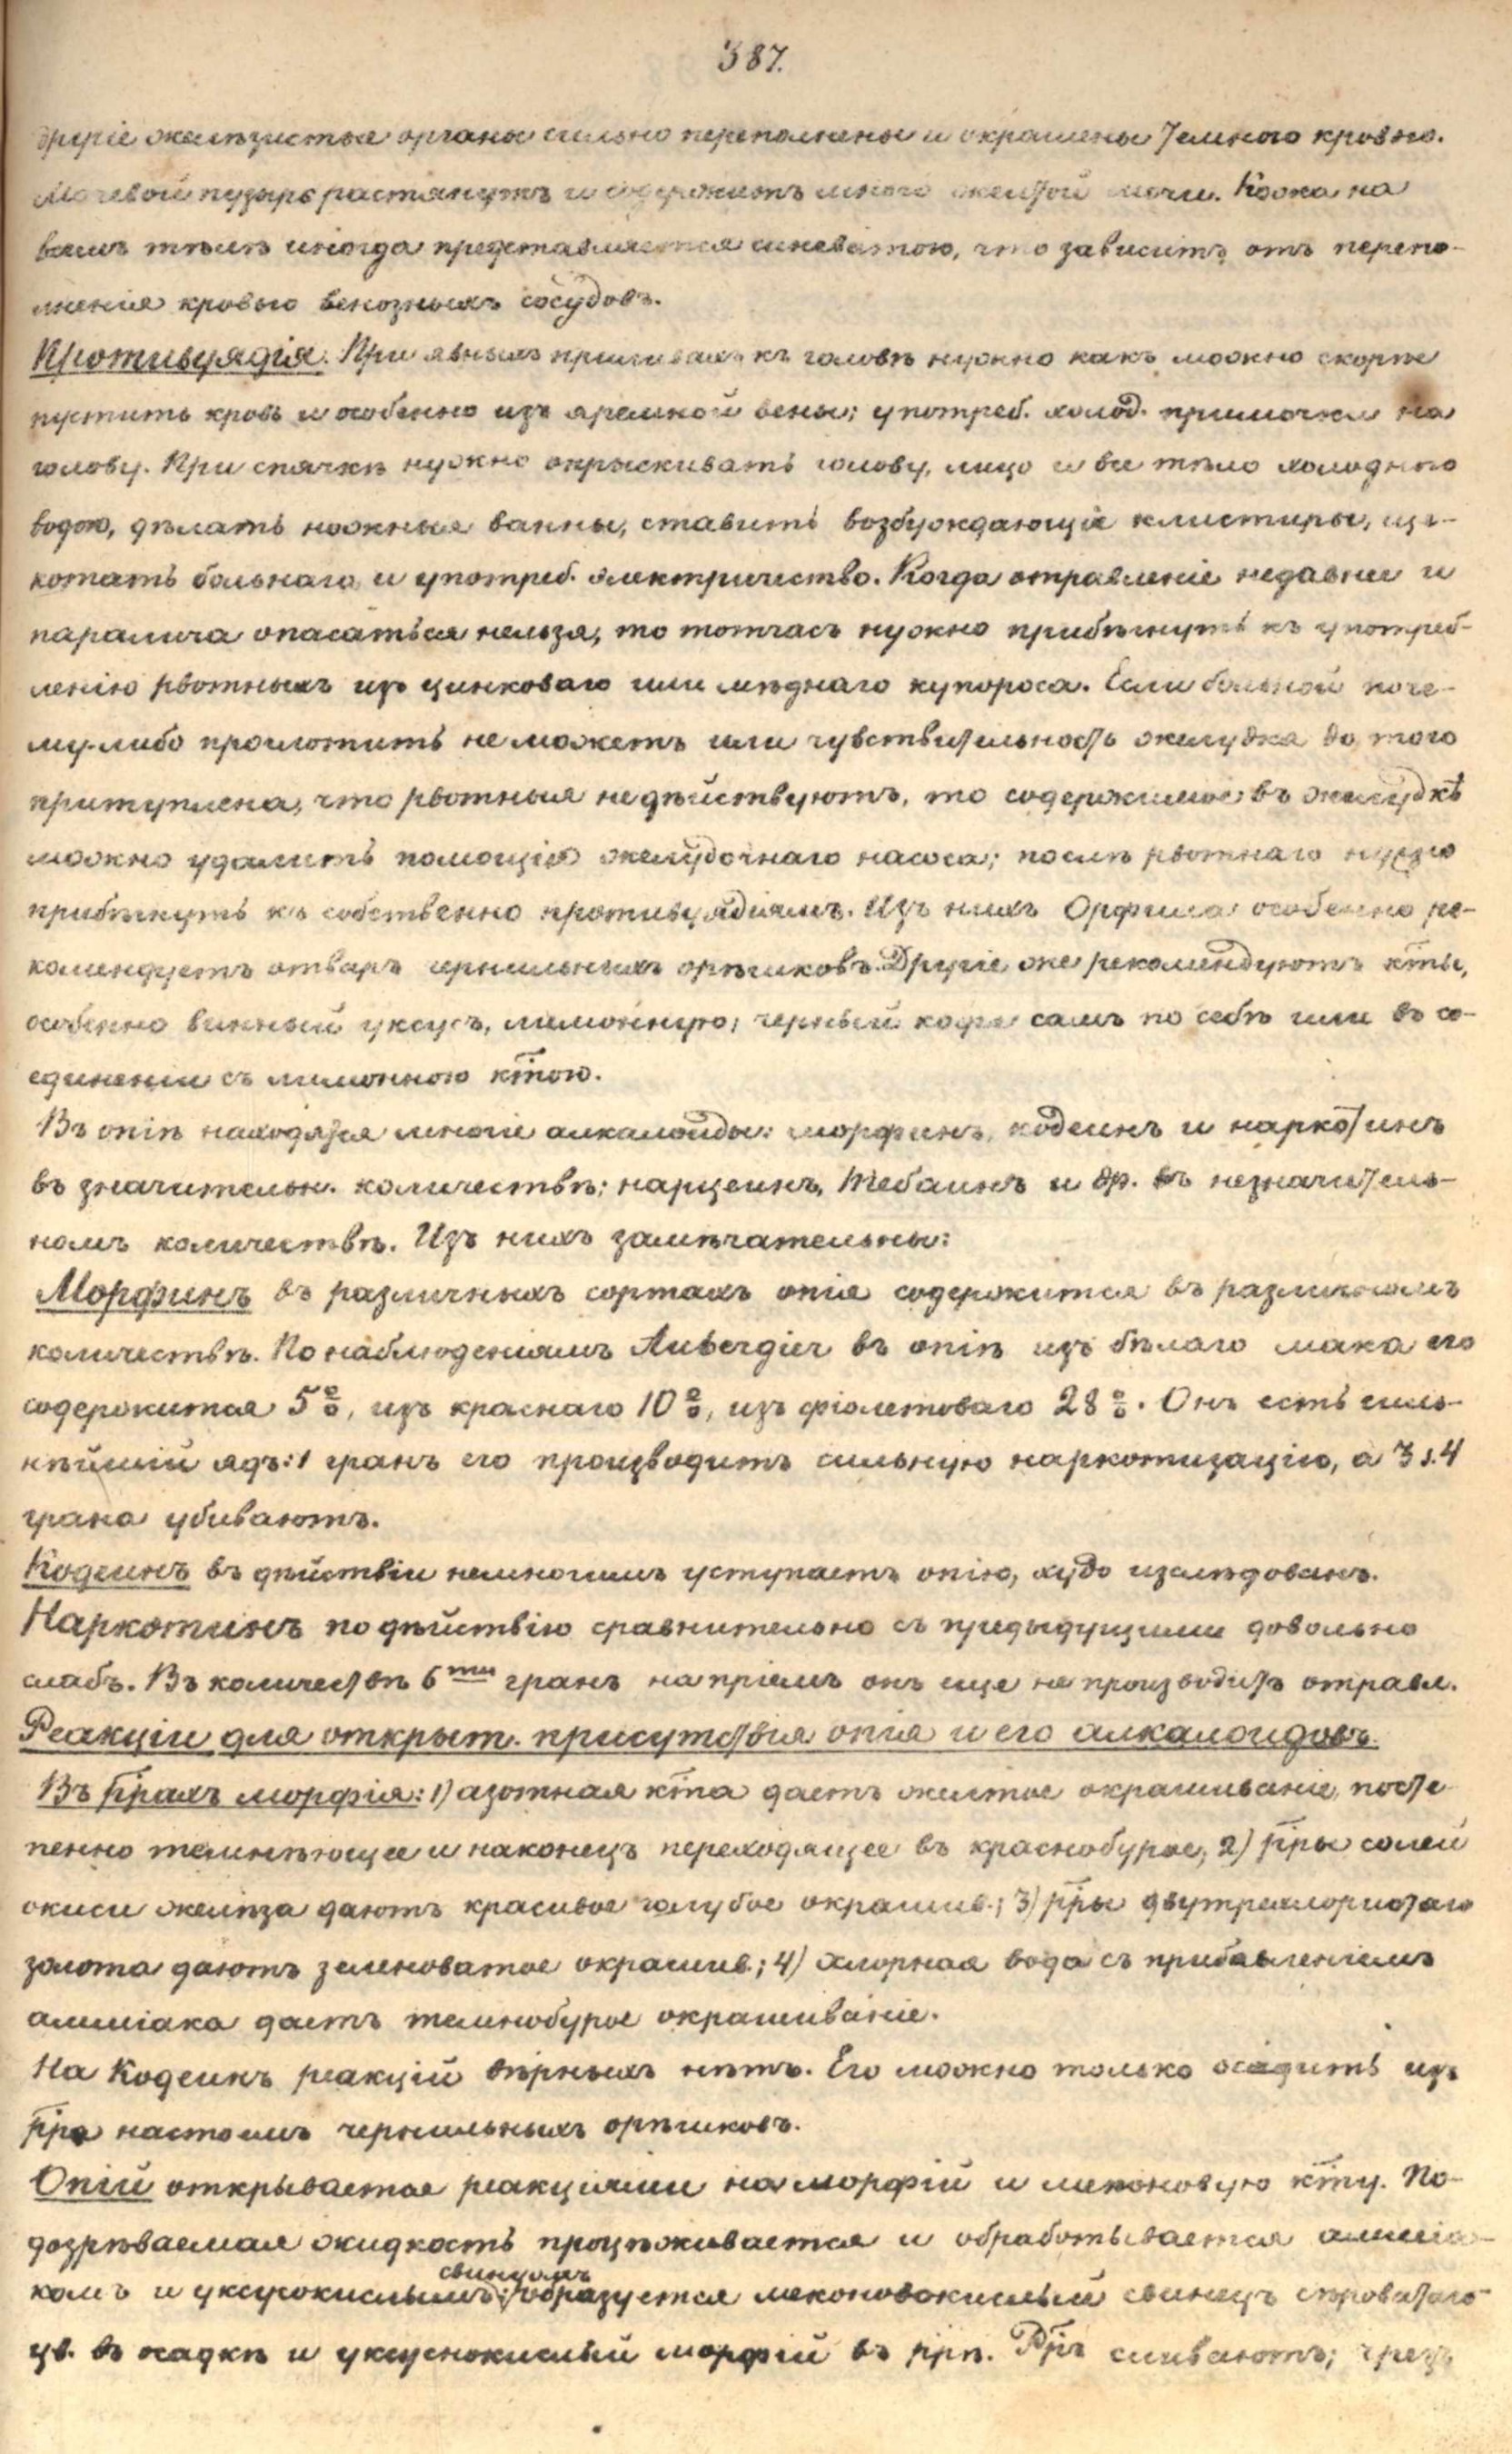 387.
другіе железистые органы сильно переполнены и окрашены темною кровью.
Мочевой пузырь растянутъ и содержитъ много желтой мочи. Кожа на
всемъ тѣлѣ иногда представляется синеватою, что зависитъ отъ перепо-
лненія кровью венозныхъ сосудовъ.
Противуядія. При явныхъ приливахъ къ головѣ нужно какъ можно скорѣе
пустить кровь и особенно изъ яремной вены; употреб. холод. примочки на
голову. При спячкѣ нужно опрыскивать голову, лицо и все тѣло холодною
водою, дѣлать ножныя ванны, ставить возбуждающіе клистиры, ще-
котать больнаго и употреб. электричество. Когда отравленіе недавнее и
паралича опасаться нельзя, то тотчасъ нужно прибѣгнуть къ употреб-
ленію рвотныхъ изъ цинковаго или мѣднаго купороса. Если больной поче-
му-либо проглотить не можетъ или чувствительность желудка до того
притуплена, что рвотныя не дѣйствуютъ, то содержимое въ желудкѣ
можно удалить помощію желудочнаго насоса; послѣ рвотнаго нужно
прибѣгнуть къ собственно противуядіямъ. Изъ нихъ Орфила особенно ре-
комендуетъ отваръ чернильныхъ орѣшковъ. Другіе же рекомендуютъ к͞ты,
особенно винный уксусъ, лимонную; черный кофе самъ по себѣ или въ со-
единеніи съ лимонною к͞тою.
Въ опіѣ находятся многіе алкалоиды: морфинъ, кодеинъ и наркотинъ
въ значительн. количествѣ; нарцеинъ, тебаинъ и др. въ незначитель-
номъ количествѣ. Изъ нихъ замѣчательны:
Морфинъ въ различныхъ сортахъ опія содержится въ различномъ
количествѣ. По наблюденіямъ Aubergier въ опіѣ изъ бѣлаго мака его
содержится 5%, изъ краснаго 10%, изъ фіолетоваго 28%. Онъ есть силь-
нѣйшій ядъ: 1 гранъ его производитъ сильную наркотизацію, а 3 s. 4
грана убиваютъ.
Кодеинъ въ дѣйствіи немногимъ уступаетъ опію, худо изслѣдованъ.
Наркотинъ по дѣйствію сравнительно съ предыдущими довольно
слабъ. Въ количествѣ 6ти гранъ на пріемъ онъ еще не производитъ отравл.
Реакціи для открыт. присутствія опія и его алкалоидовъ.
Въ р͞рахъ морфія: 1) азотная к͞та даетъ желтое окрашиваніе, посте-
пенно темнѣющее и наконецъ переходящее въ краснобурое; 2) р͞ры солей
окиси желѣза даютъ красивое голубое окрашив.; 3) р͞ры двутреххлористаго
золота даютъ зеленоватое окрашив.; 4) хлорная вода съ прибавленіемъ
амміака даетъ темнобурое окрашиваніе.
На Кодеинъ реакцій вѣрныхъ нѣтъ. Его можно только осадить изъ
р͞ра настоемъ чернильныхъ орѣшковъ.
Опій открывается реакціями на морфій и меконовую к͞ту. По-
дозрѣваемая жидкость процѣживается и обработывается амміа-
комъ и уксуокислымъ свинцомъ; образуется меконовокислый свинецъ сѣроватаго
цв. въ осадкѣ и уксуснокислый морфій въ р͞рѣ. Р͞ръ сливаютъ; чрезъ